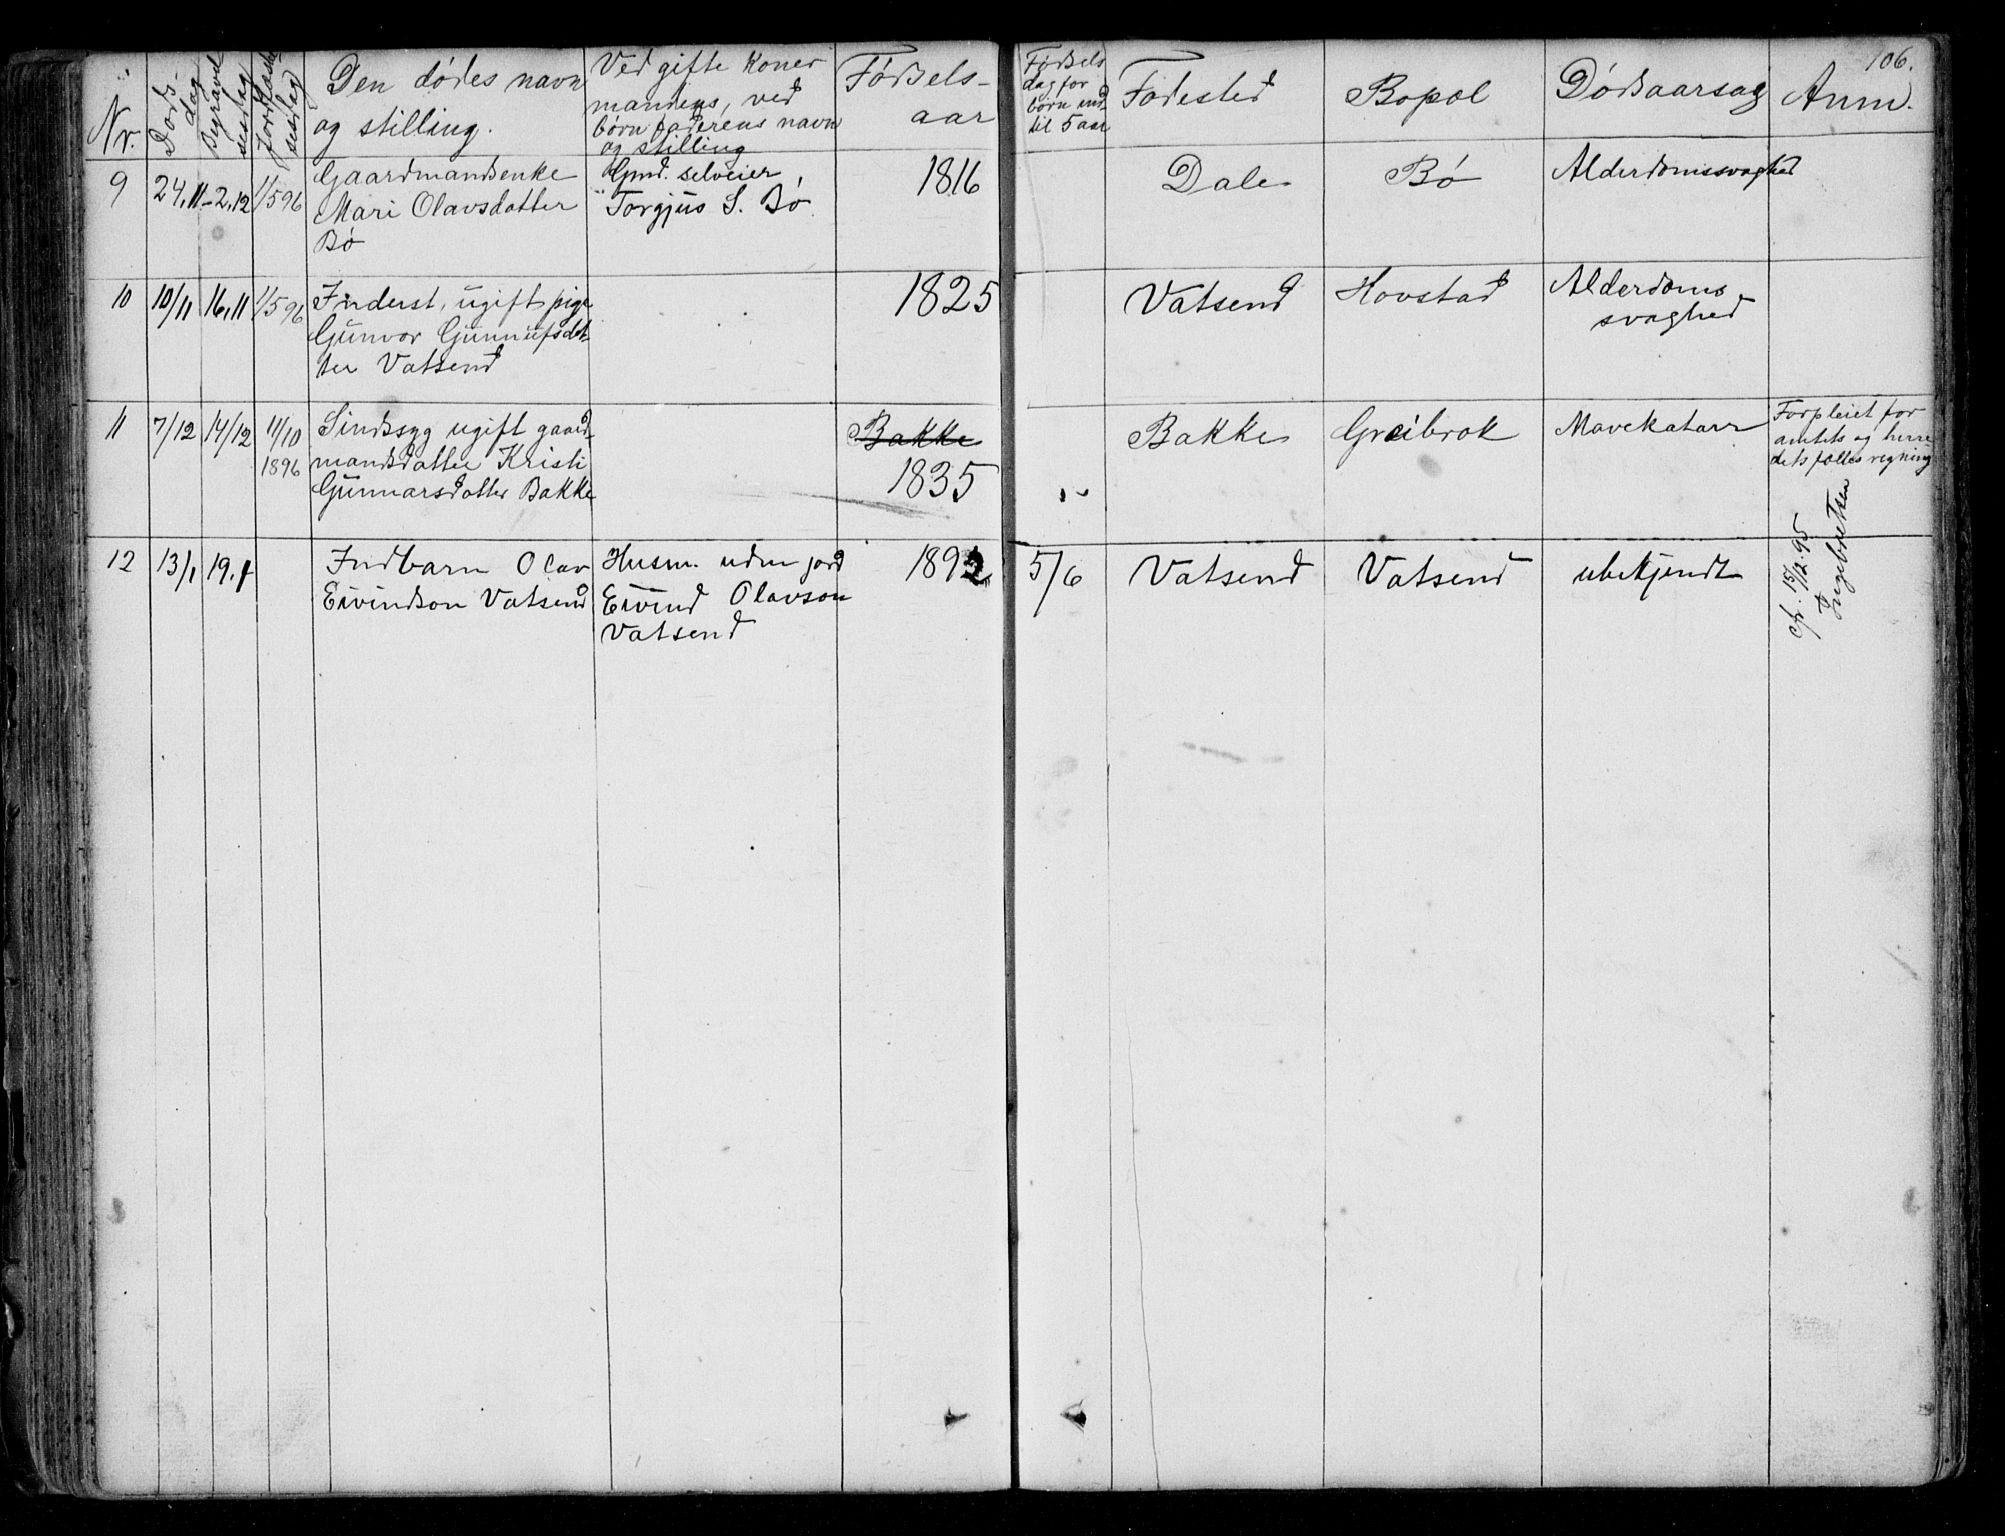 106.
Nr.
Døds-
dag
Begravel
sesdag
Den dødes navn
og stilling.
Ved gifte koner
mandens, ved
børn faderens navn
og stilling
Fødsels-
aar
Fødsels
dag for
børn ind
til 5 aar
Fødested
Bopæl
Dødsaarsag
Anm.
9
24,11
2,12
1/5 96
Gaardmandsenke
Mari Olavsdatter
Bø
Gmd. selveier
Torgjus S. Bø
1816
Dale
Bø
Alderdomssvaghed
10
10/11
16,11
1/5 96
Inderst, ugift pige
Gunvor Gunnufsdat-
ter Vatsend
1825
Vatsend
Hovstad
Alderdoms
svaghed
11
7/12
14/12
11/10
1896
Sindssyg ugift gaard-
mandsdatter Kristi
Gunnarsdatter Bakke
Bakke
1835
Bakke
Greibrok
Mavekatarr
Forpleiet for
amtets og herre
dets fælles regning
cfr. 15/12 95
Ingebretsen
12
13/1
19.1
Indbarn Olav
Eivindson Vatsend
Husm. uden jord
Eivind Olavson
Vatsend
1892
5/6
Vatsend
Vatsend
ubekjendt